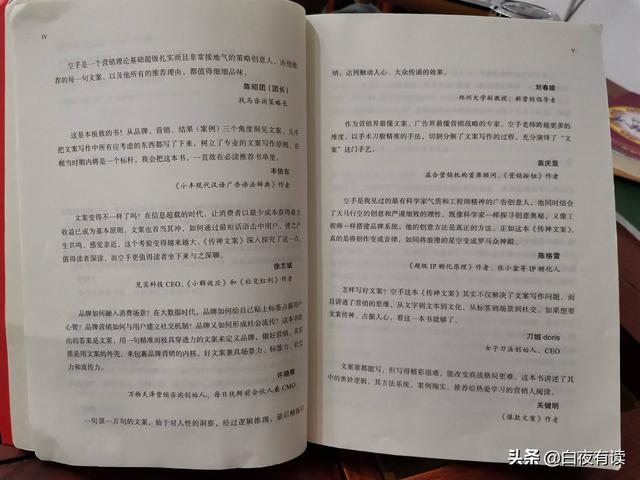 IV
空手是一个营销理论基础超级扎实而且非常接地气的策略创意人，由他推
荐的每一句文案，以及他所有的推荐理由，都值得细细品味。
陈绍团（团长）
找马咨询策略长
这是本极致的书！从品牌、营销、结果（案例）三个角度洞见文案，几乎
把文案写作中所应有考虑的东西都写了下来，树立了专业的文案写作原则，在
相当时期内将是一个标杆。我会把这本书，一直放在必读推荐书单里。
李倩东
《小丰现代汉语广告语法辞典》作者
文案变得不一样了吗？在信息超载的时代，让消费者以最少成本获得最大
收益已成为基本原则。文案也首当其冲，如何通过最短话语击中用户，使之产
生共鸣、感觉亲近，这个考验变得越来越大。《传神文案》深入探究了这一点，
值得读者深读，而空手更值得读者坐下来与之深聊。
徐志斌
见实科技CEO、《小群效应》和《社交红利》作者
品牌如何融入消费场景？在大数据时代，品牌如何给自己贴上标签占据用户
心智？品牌营销如何与用户建立社交机制？品牌又如何形成社会流传？这本书给
出的答案是文案，用一句精准而极具穿透力的文案来定义品牌、做好营销，其实
质是用文案的外壳，来包裹品牌营销的内核。好文案兼具场景力、标签力、社交
力和流传力。
许晓辉
万物天泽营销咨询创始人、每日优鲜前合伙人兼CMO
一句顶一万句的文案，始于对人性的洞察，经过逻辑推理，最后精炼归
V
纳，达到触动人心、大众传诵的效果。
刘春雄
郑州大学副教授、新营销倡导者
作为营销界最懂文案、广告界最懂营销战略的专家，空手老师跨越更多的
维度，以手术刀般精准的手法，切割分解了文案写作的过程，充分演绎了“文
案”这门手艺。
苗庆显
益合营销机构首席顾问、《营销按钮》作者
空手是我见过的最有科学家气质和工程师精神的广告创意人，他同时结合
了天马行空的创意和严谨细致的理性，既像科学家一样探寻创意奥秘，又像工
程师一样搭建品牌系统。他的创意方法是真的方法，正如这本《传神文案》，
真的是得创作变成音律，如同将浪漫的星空变成罗马众神殿。
陈格雷
《超级IP孵化原理》作者、张小盒等IP孵化人
怎样写好文案？空手这本《传神文案》其实不仅解决了文案写作问题，而
且讲透了营销的思维，从文字到文本到文化，从标签到场景到社交。如果想要
文案传神、占据人心，看这一本书就够了。
刀姐doris
女子刀法创始人、CEO
文案谁都能写，但写得精彩很难，能改变商战格局更难。这本书讲述了其
中的奥妙逻辑，其方法系统、案例翔实，推荐给热爱学习的营销人阅读。
关健明
《爆款文案》作者
头条 @白夜有读